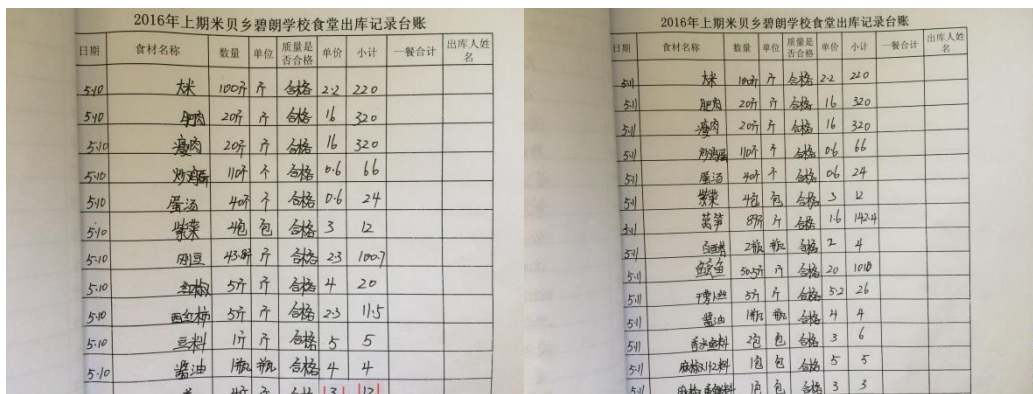 2016年上期米贝乡碧朗学校食堂出库记录台账
日期 食材名称 数量 单位 质量是否合格 单价 小计 一餐合计 出库人姓名
5.10 大米 100斤 斤 合格 2.2 220
5.10 肥肉 20斤 斤 合格 16 320
5.10 瘦肉 20斤 斤 合格 16 320
5.10 炒鸡蛋 110个 个 合格 0.6 66
5.10 蛋汤 40个 个 合格 0.6 24
5.10 紫菜 4包 包 合格 3 12
5.10 43.8斤 斤 合格 2.3 100.7
5.10 红椒 5斤 斤 合格 4 20
5.10 西红柿 5斤 斤 合格 2.3 11.5
5.10 豆料 1斤 斤 合格 5 5
5.10 酱油 1瓶 瓶 合格 4 4
2016年上期米贝乡碧朗学校食堂出库记录台账
日期 食材名称 数量 单位 质量是否合格 单价 小计 一餐合计 出库人姓名
5.11 大米 100斤 斤 合格 2.2 220
5.11 肥肉 20斤 斤 合格 16 320
5.11 瘦肉 20斤 斤 合格 16 320
5.11 炒鸡蛋 110个 个 合格 0.6 66
5.11 蛋汤 40个 个 合格 0.6 24
5.11 紫菜 4包 包 合格 3 12
5.11 莴笋 89斤 斤 合格 1.6 142.4
5.11 2瓶 瓶 合格 2 4
5.11 50.5斤 斤 合格 20 1010
5.11 5斤 斤 合格 5.2 26
5.11 酱油 1瓶 瓶 合格 4 4
5.11 2包 包 合格 3 6
5.11 1包 包 合格 5 5
5.11 1包 包 合格 3 3